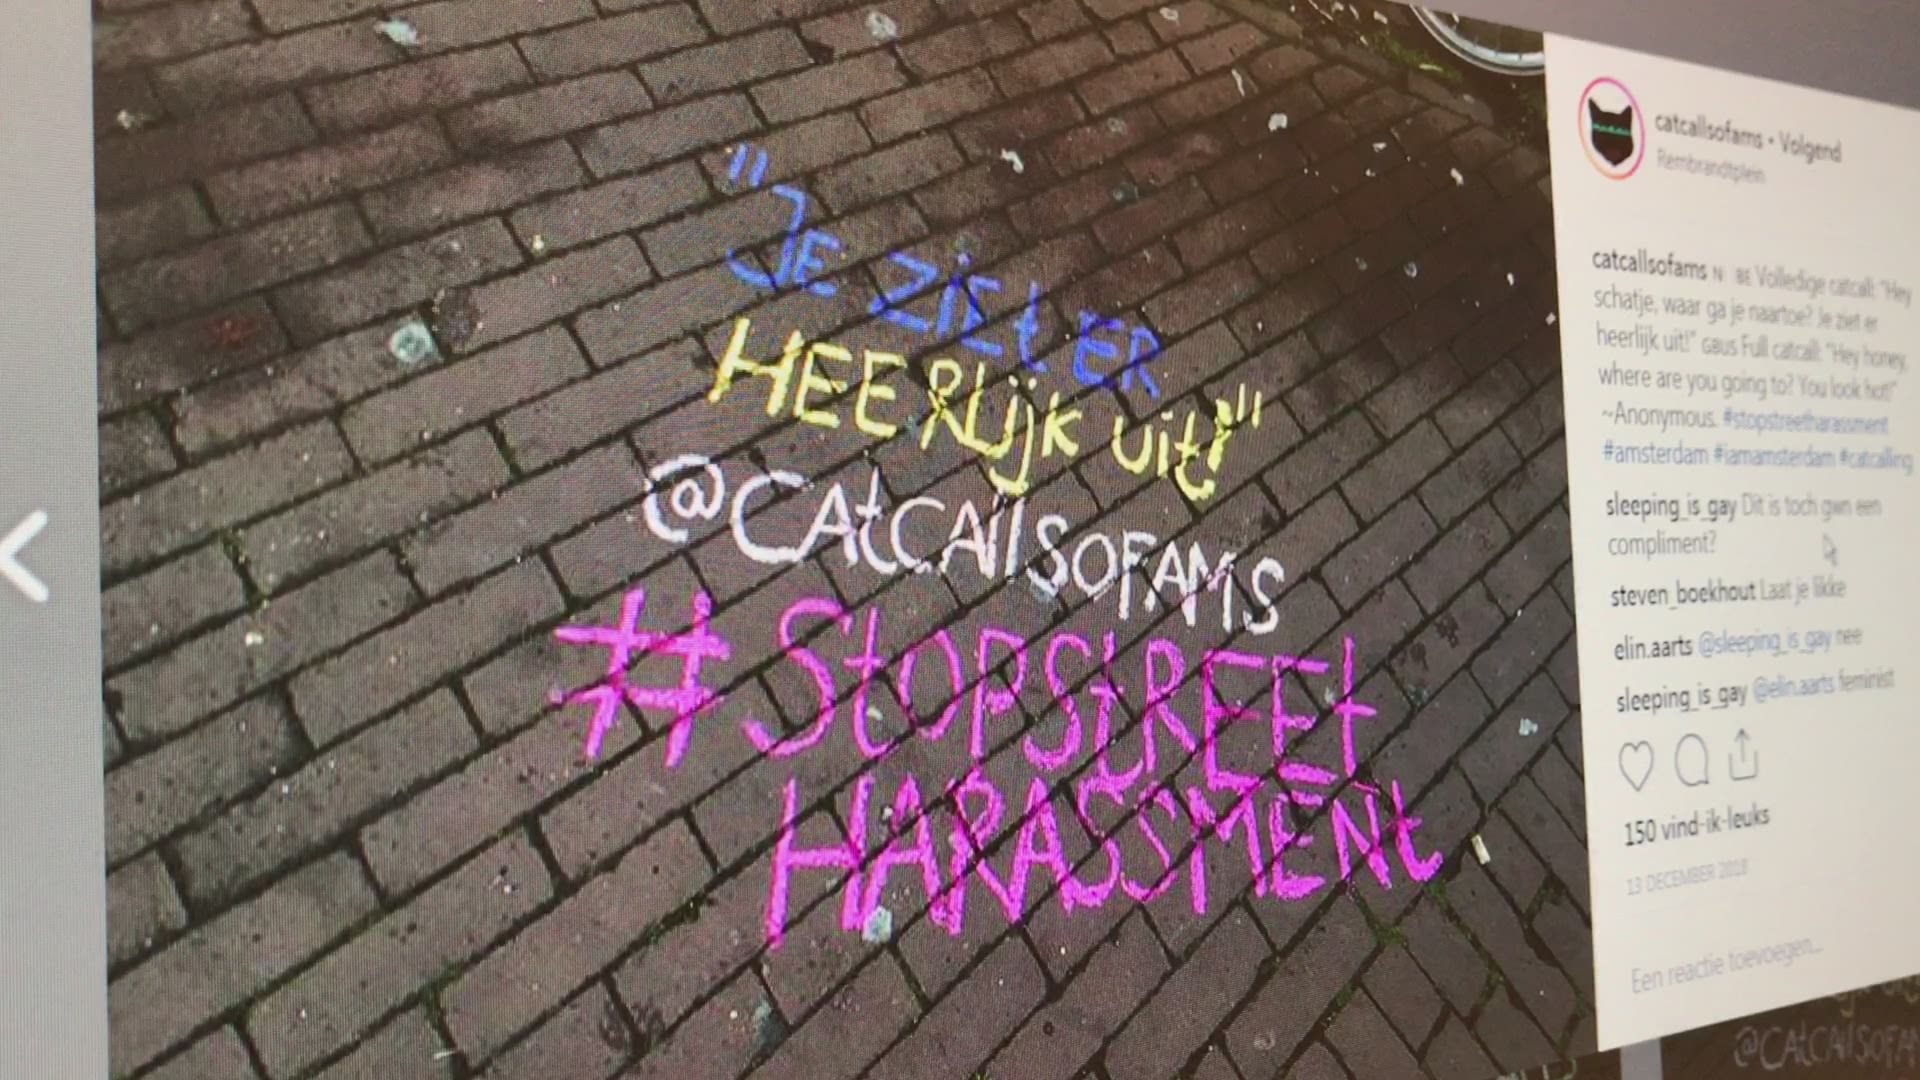 "JE ZIEt ER
HEERLijk uit!"
@CAtCAllSOFAMS
#StOPStREEt
HARASSMENt
catcallsofams • Volgend
Rembrandtplein
catcallsofams Volledige catcall: "Hey
schatje, waar ga je naartoe? Je ziet er
heerlijk uit!" Full catcall: "Hey honey,
where are you going to? You look hot!"
~Anonymous. #stopstreetharassment
#amsterdam #iamamsterdam #catcalling
sleeping_is_gay Dit is toch gwn een
compliment?
steven_boekhout Laat je likke
elin.aarts @sleeping_is_gay nee
sleeping_is_gay @elin.aarts feminist
150 vind-ik-leuks
13 DECEMBER 2018
Een reactie toevoegen...
@CAtCAllSOFA